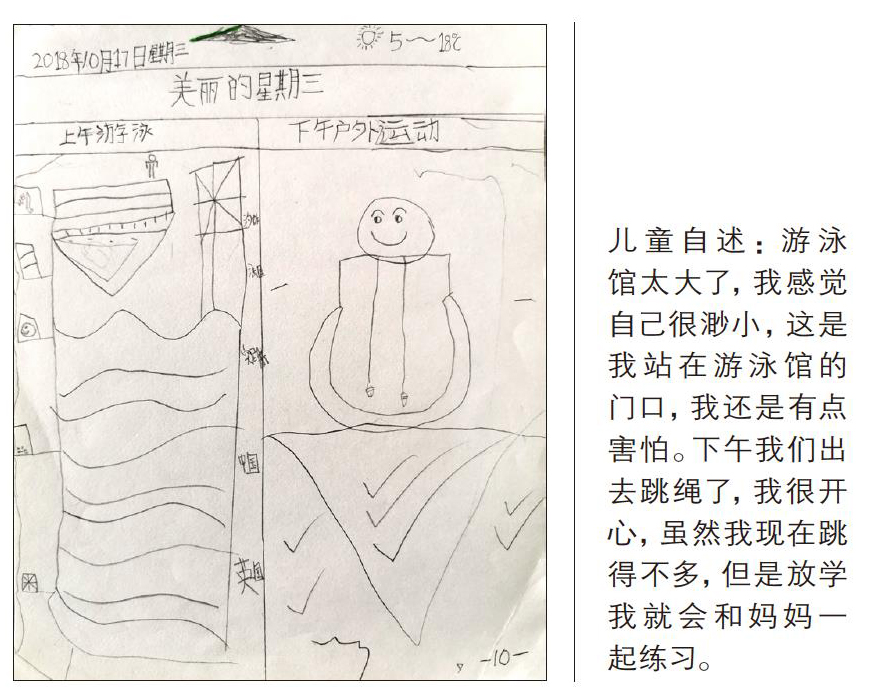 2018年10月17日星期三
5~18℃
美丽的星期三
上午 泳
下午户外运动
中国
英国
-10-
儿童自述：游泳
馆太大了，我感觉
自己很渺小，这是
我站在游泳馆的
门口，我还是有点
害怕。下午我们出
去跳绳了，我很开
心，虽然我现在跳
得不多，但是放学
我就会和妈妈一
起练习。